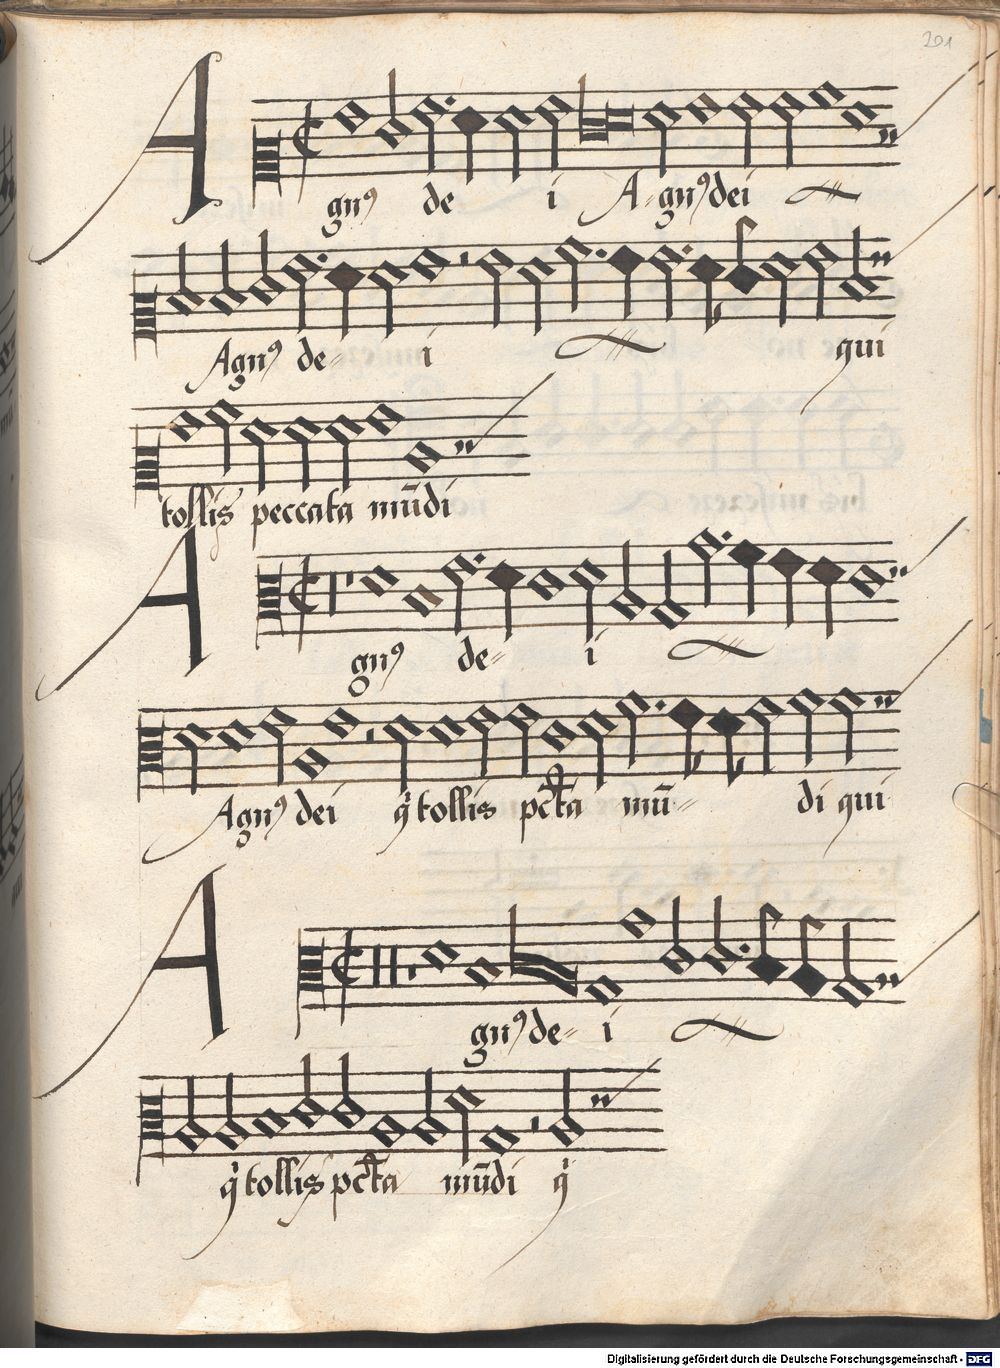 201
A
gnꝰ de i A-gnꝰ dei
Agnꝰ de- i qui
tollis peccata mūdi
A
gnꝰ de- i
Agnꝰ dei q̇ tollis pc̄ta mū- di qui
A
gnꝰ de- i
q̇ tollis pc̄ta mūdi q̇
Digitalisierung gefördert durch die Deutsche Forschungsgemeinschaft - DFG